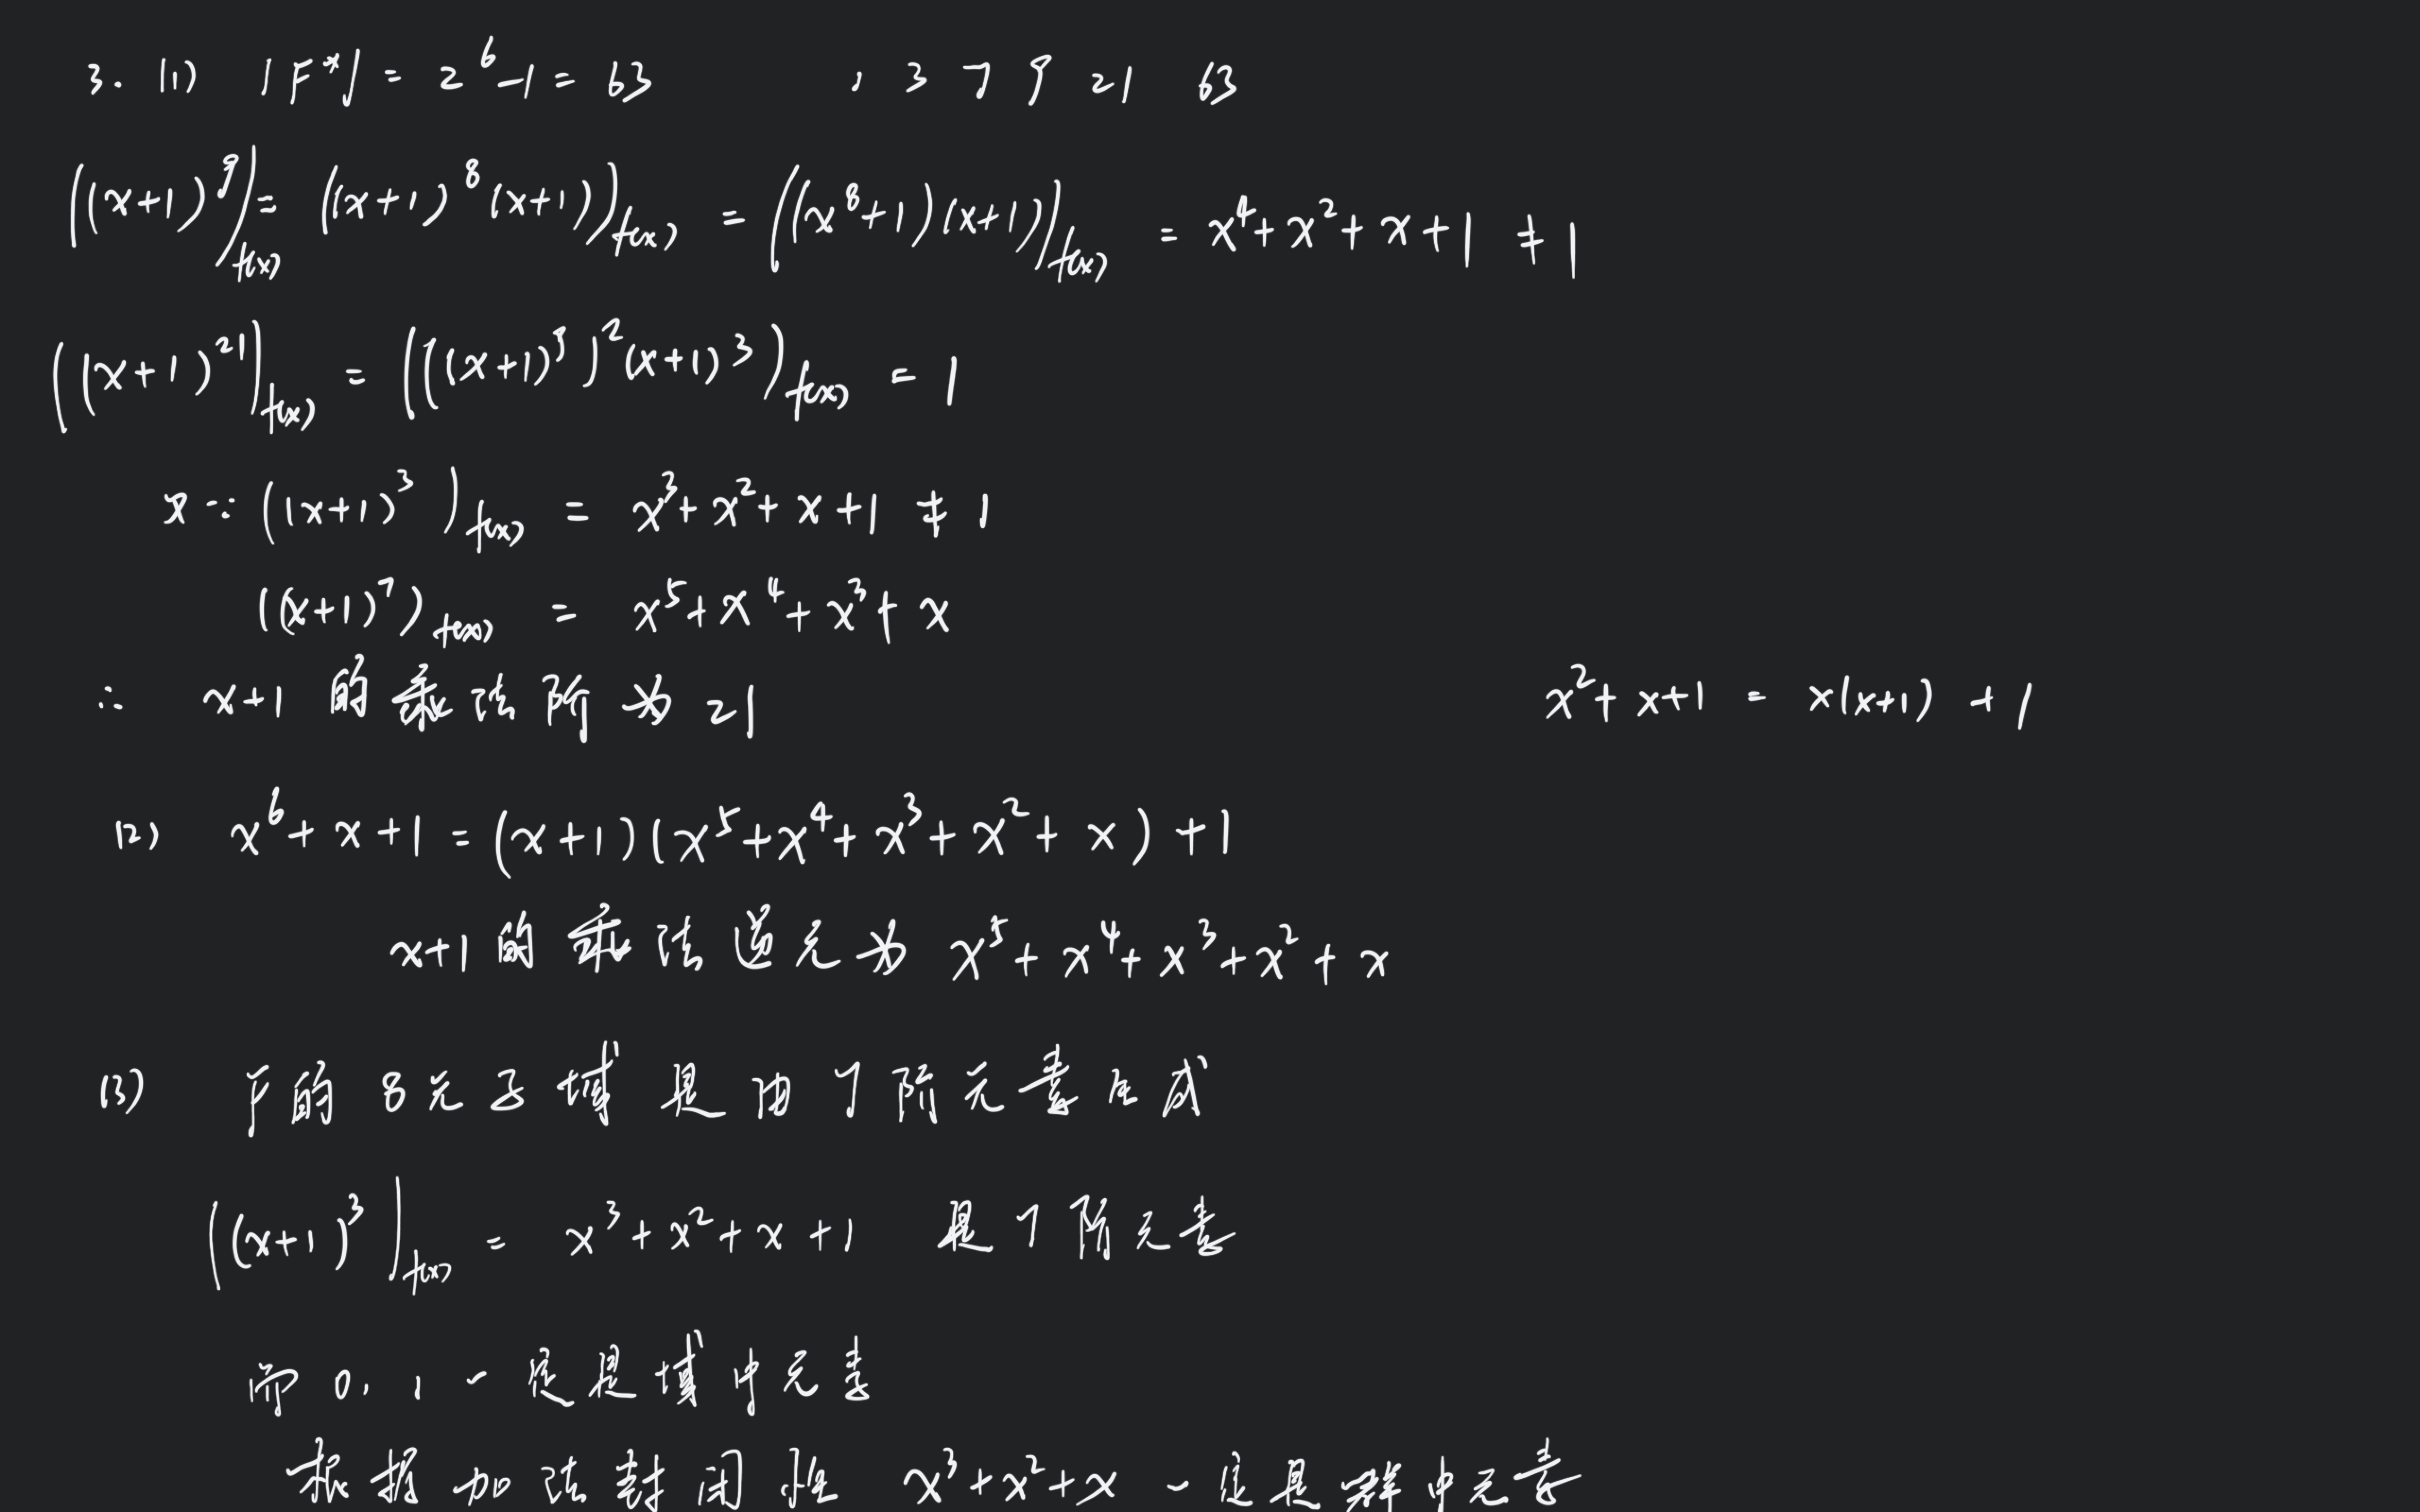 3. (1) |F*| = 2^6 - 1 = 63 1 3 7 9 21 63
((x+1)^9)_{f(x)} = ((x+1)^8 (x+1))_{f(x)} = ((x^8+1)(x+1))_{f(x)} = x^4 + x^2 + x + 1 ≠ 1
((x+1)^21)_{f(x)} = (((x+1)^9)^2 (x+1)^3)_{f(x)} = 1
又∵ ((x+1)^3)_{f(x)} = x^3 + x^2 + x + 1 ≠ 1
((x+1)^7)_{f(x)} = x^5 + x^4 + x^3 + x
∴ x+1 的乘法阶为 21 x^2 + x + 1 = x(x+1) + 1
(2) x^6 + x + 1 = (x+1)(x^5 + x^4 + x^3 + x^2 + x) + 1
x+1 的乘法逆元为 x^5 + x^4 + x^3 + x^2 + x
(3) F的 8元子域是由7阶元素生成
((x+1)^3)_{f(x)} = x^3 + x^2 + x + 1 是7阶元素
而 0, 1 一定是域中元素
根据加法封闭性 x^3 + x^2 + x 一定是群中元素